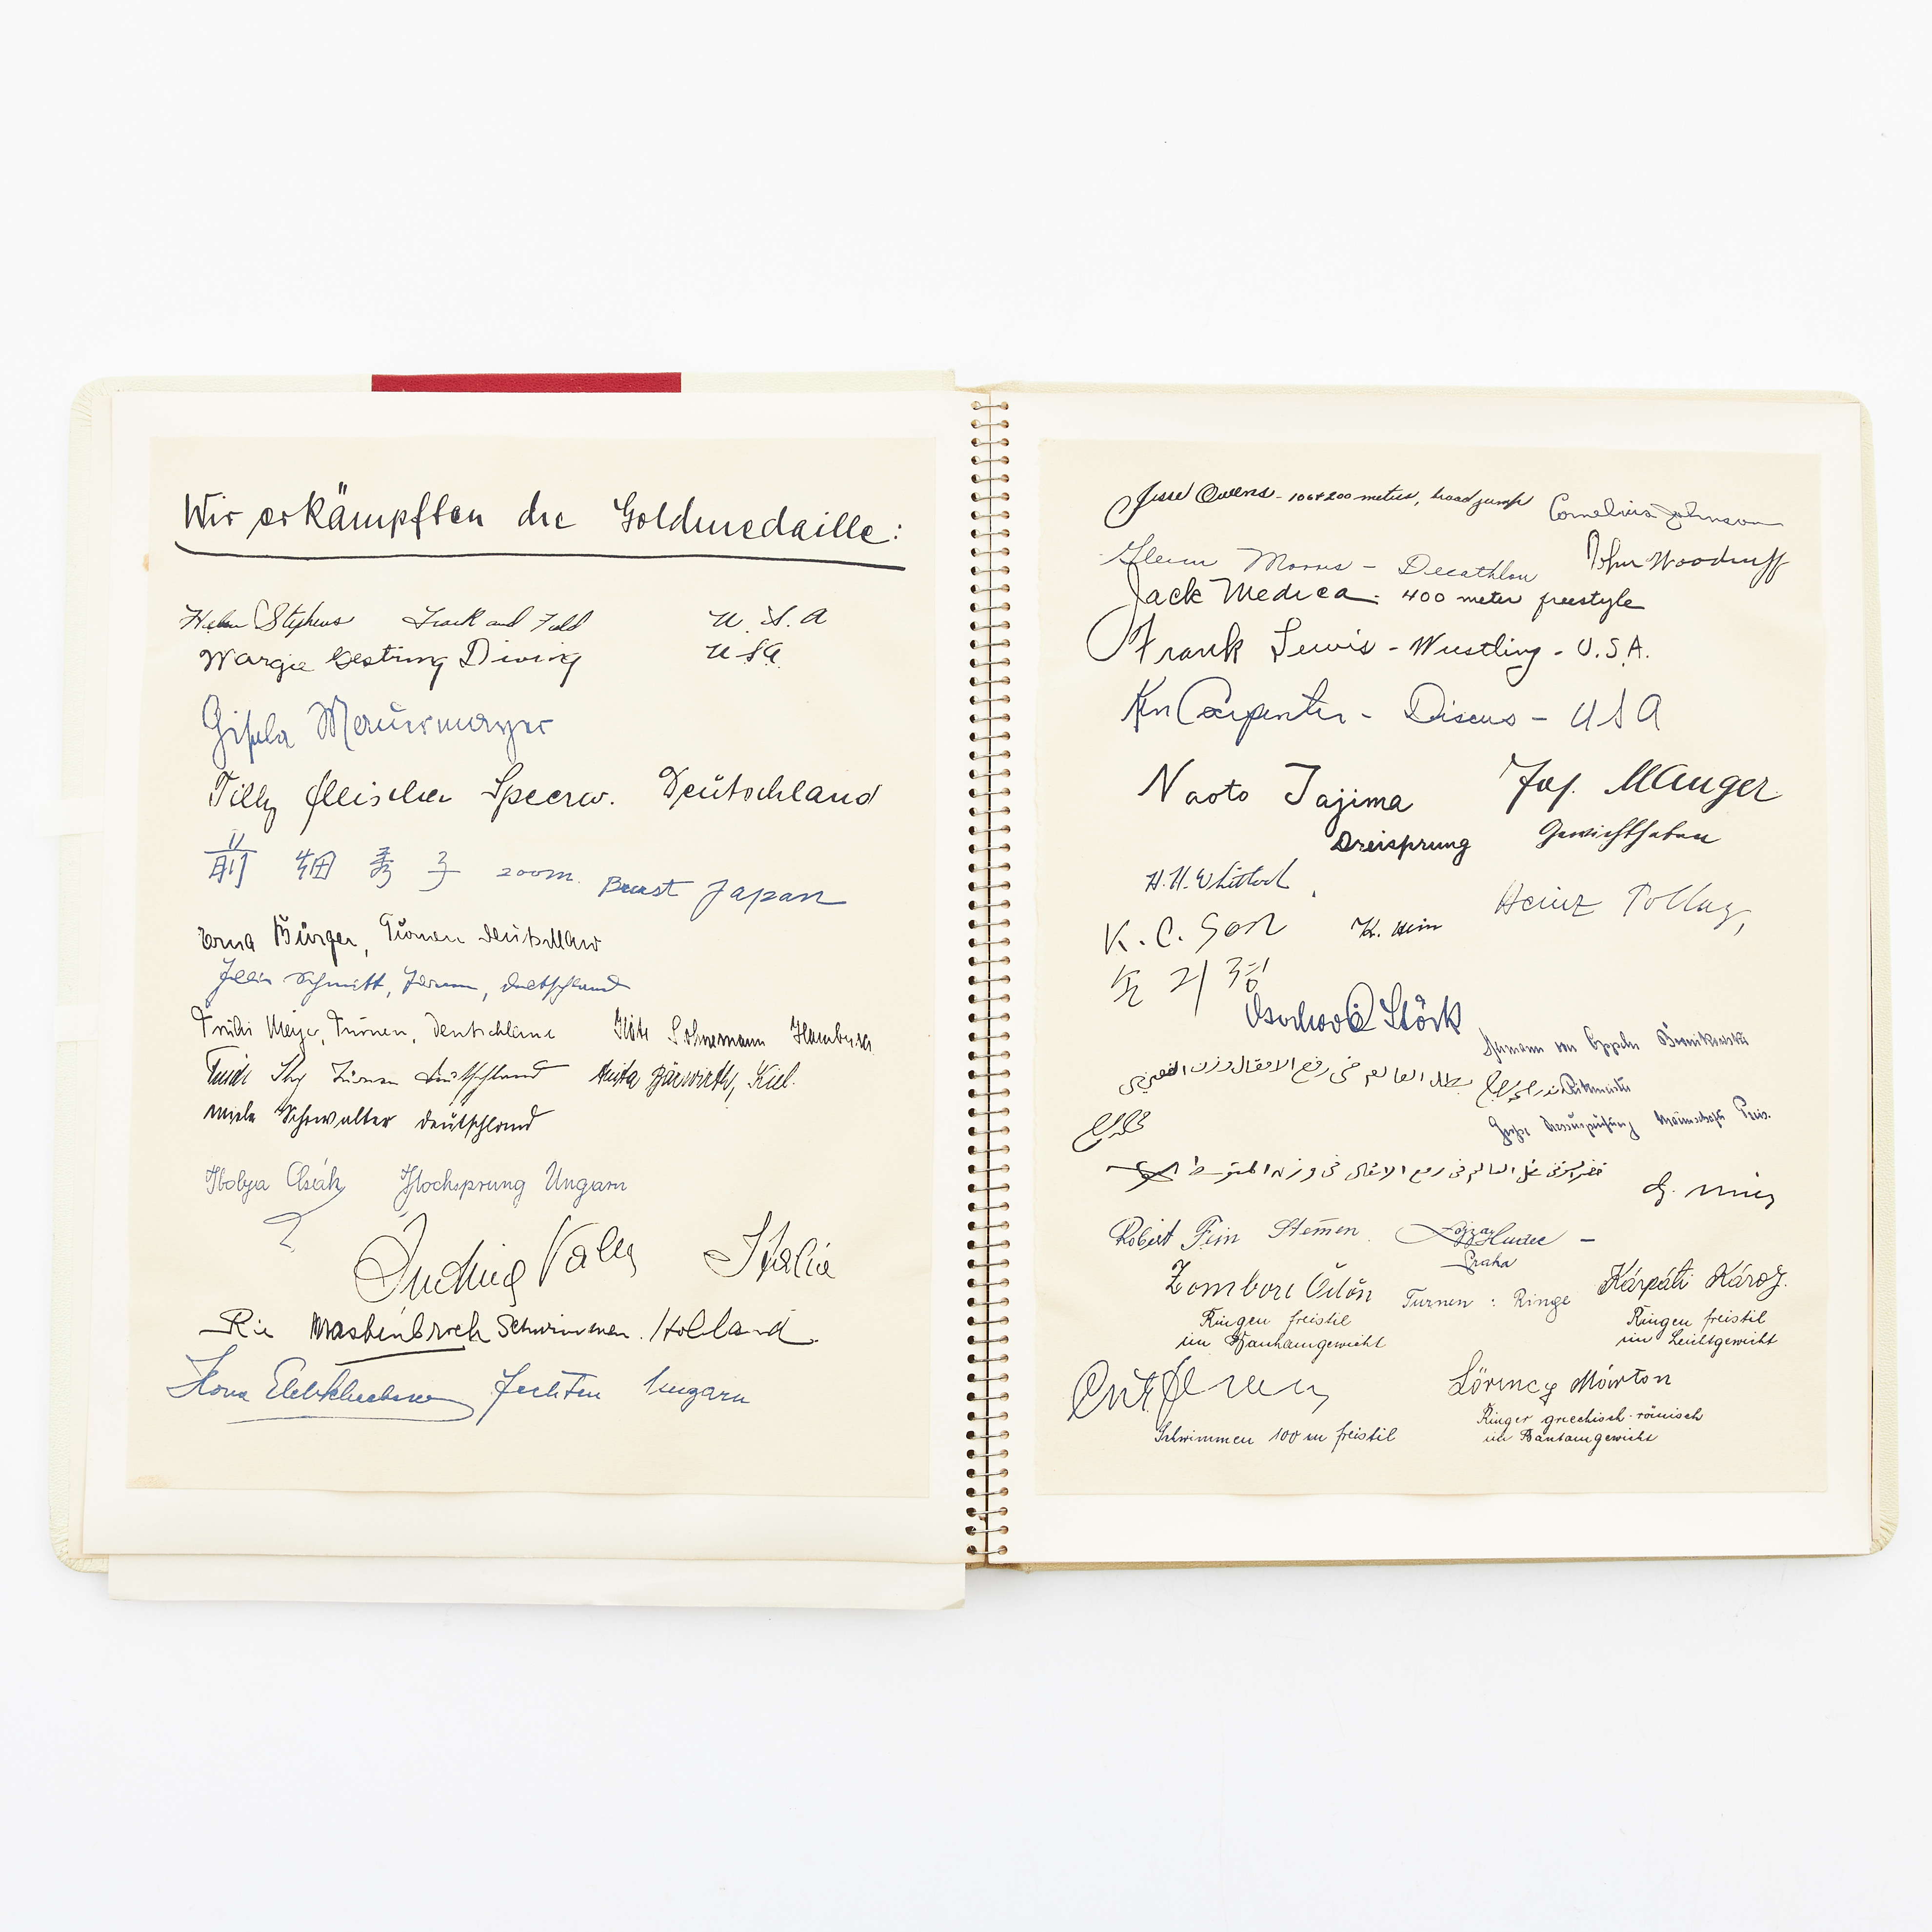 Wir erkämpften die Goldmedaille:
Helen Stephens Track and Field U.S.A
Margie Gestring Diving USA
Gisela Mauermayer
Tilly Fleischer Speerw. Deutschland
前 畑 秀 子 200m. Breast Japan
Erna Bürger, Turnen Deutschland
Schmitt, Turnen, Deutschland
Trudi Meyer, Turnen, Deutschland Käte Sohnemann Hamburg
Turnen Deutschland Anita Bärwirth, Kiel.
Deutschland
Ibolya Csák Hochsprung Ungarn
Valla Italia
Rie Mastenbroek Schwimmen. Holland
Ilona Elek Fechten Ungarn
Jesse Owens - 100+200 metres, broad jump Cornelius Johnson
Glenn Morris - Decathlon John Woodruff
Jack Medica - 400 meter freestyle
Frank Lewis - Wrestling - U.S.A.
Ken Carpenter - Discus - USA
Naoto Tajima Jos. Manger
Dreisprung Gewichtheben
H.H. Whitlock Heinz Pollay,
K. C. Son K. Himm
손 긔 졍
Stöck
Hermann von Oppeln Bronikowski
بطل العالم فى رفع الاثقال وزن الخفيف
Rittmeister
Große Dressurprüfung Mannschafts Preis.
بطل العالم فى رفع الاثقال فى وزن المتوسط
Robert Fein Stemmen Alojz Hudec -
Praha
Zombori Ödön Turnen: Ringe Kárpáti Károly
Ringen freistil Ringen freistil
im Bantamgewicht im Leichtgewicht
Csik Ferenc Lörincz Márton
Schwimmen 100 m freistil Ringer griechisch-römisch
im Bantamgewicht